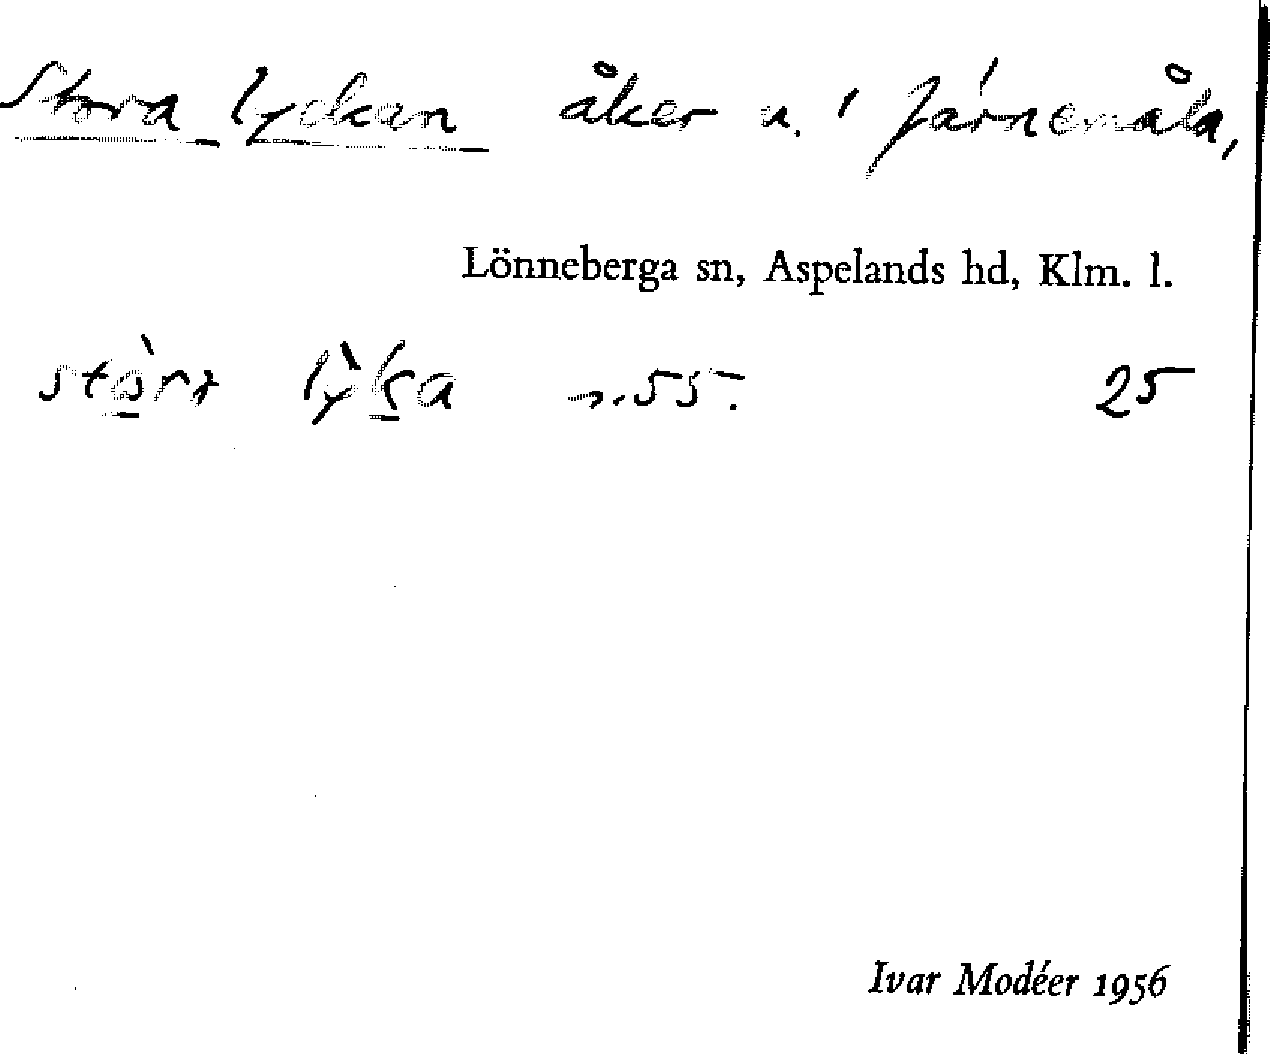 Stora lyckan åker u. ' Järnemåla,
Lönneberga sn, Aspelands hd, Klm. l.
25
Ivar Modéer 1956